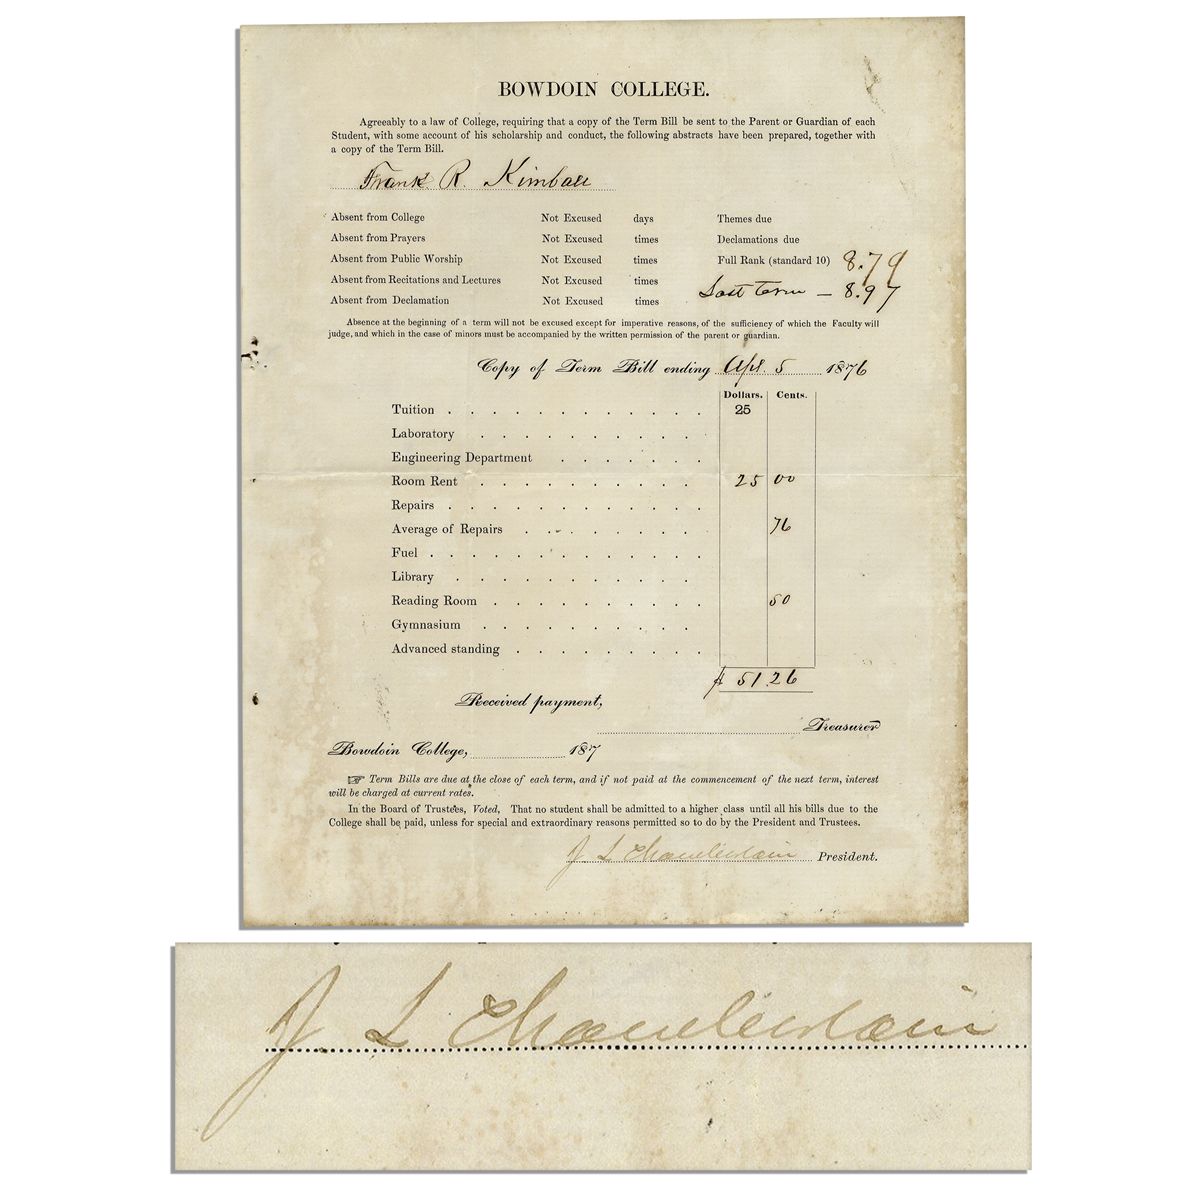 BOWDOIN COLLEGE.
Agreeably to a law of College, requiring that a copy of the Term Bill be sent to the Parent or Guardian of each
Student, with some account of his scholarship and conduct, the following abstracts have been prepared, together with
a copy of the Term Bill.
Frank R. Kimball
Absent from College Not Excused days Themes due
Absent from Prayers Not Excused times Declamations due
Absent from Public Worship Not Excused times Full Rank (standard 10) 8.79
Absent from Recitations and Lectures Not Excused times
Last term — 8.97
Absent from Declamation Not Excused times
Absence at the beginning of a term will not be excused except for imperative reasons, of the sufficiency of which the Faculty will
judge, and which in the case of minors must be accompanied by the written permission of the parent or guardian.
Copy of Term Bill ending Apl. 5 1876
Dollars. Cents.
Tuition . . . . . . . . . . . . 25
Laboratory . . . . . . . . . . .
Engineering Department . . . . . . .
Room Rent . . . . . . . . . . 25 00
Repairs . . . . . . . . . . . .
Average of Repairs . . . . . . . . 76
Fuel . . . . . . . . . . . . .
Library . . . . . . . . . . . .
Reading Room . . . . . . . . . . 50
Gymnasium . . . . . . . . . . .
Advanced standing . . . . . . . . .
$ 51.26
Received payment,
Treasurer
Bowdoin College, 187
☞ Term Bills are due at the close of each term, and if not paid at the commencement of the next term, interest
will be charged at current rates.
In the Board of Trustees, Voted, That no student shall be admitted to a higher class until all his bills due to the
College shall be paid, unless for special and extraordinary reasons permitted so to do by the President and Trustees.
J L Chamberlain President.
J L Chamberlain